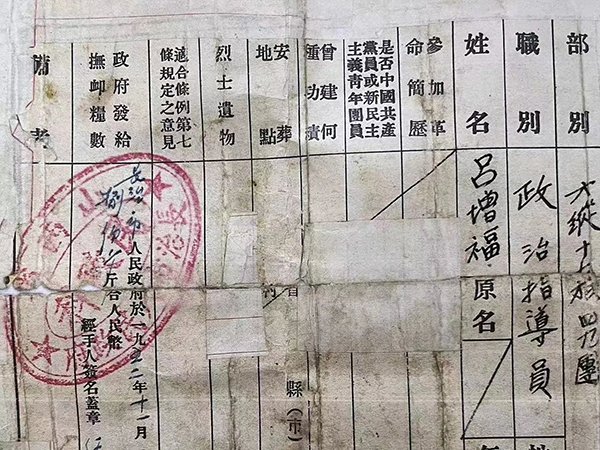 部別 六縱十七旅四九團
職別 政治指導員
姓名 呂增福 原名
參加革
命簡歷
是否中國共產
黨員或新民主
主義青年團員
曾建何
種功績
縣(市)
安葬
地點
烈士遺物
適合條例第七
條規定之意見
政府發給
撫卹糧數
長治市人民政府於一九五二年十一月
捌佰斤合人民幣
經手人簽名蓋章
備考